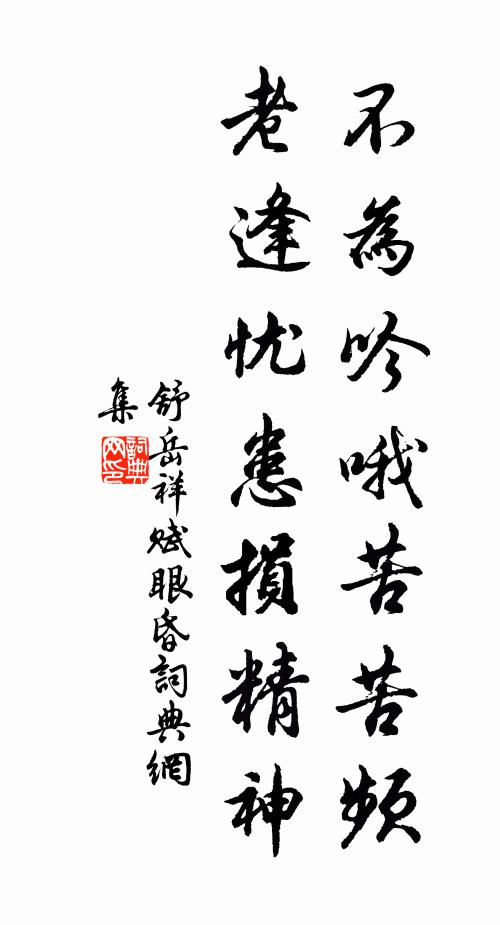 不為吟哦苦苦頻
老逢忧患損精神
舒岳祥賦眼昏詞典網
集
詞典
网印